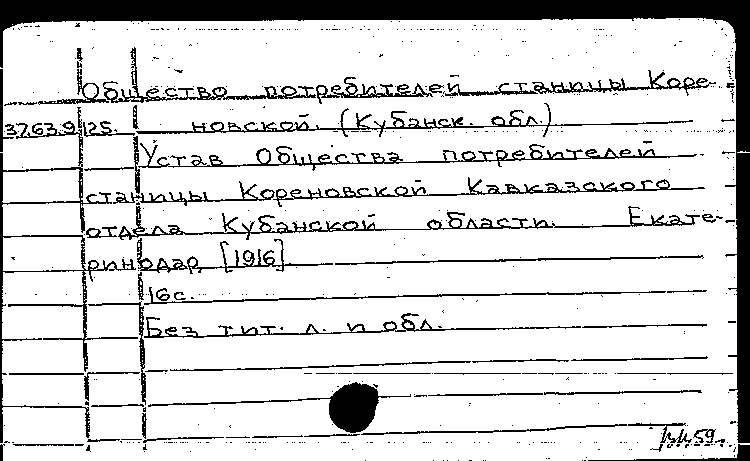 Общество потребителей станицы Коре-
37.63.9.125. новской. (Кубанск. обл.)
Устав Общества потребителей
станицы Кореновской Кавказского
отдела Кубанской области. Екате-
ринодар, [1916]
16 с.
Без тит. л. и обл.